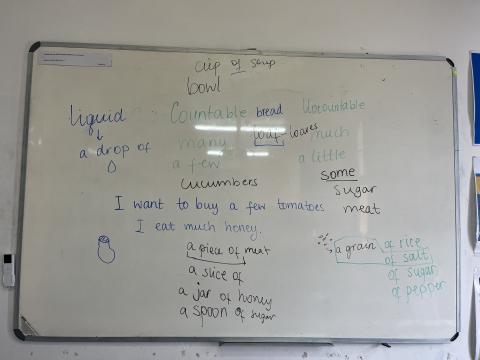 cup of soup
bowl
liquid Countable bread Uncountable
loaf - loaves
a drop of many much
a few a little
cucumbers some
sugar
I want to buy a few tomatoes meat
I eat much honey.
a piece of meat a grain of rice
a slice of of salt
of sugar
a jar of honey of pepper
a spoon of sugar